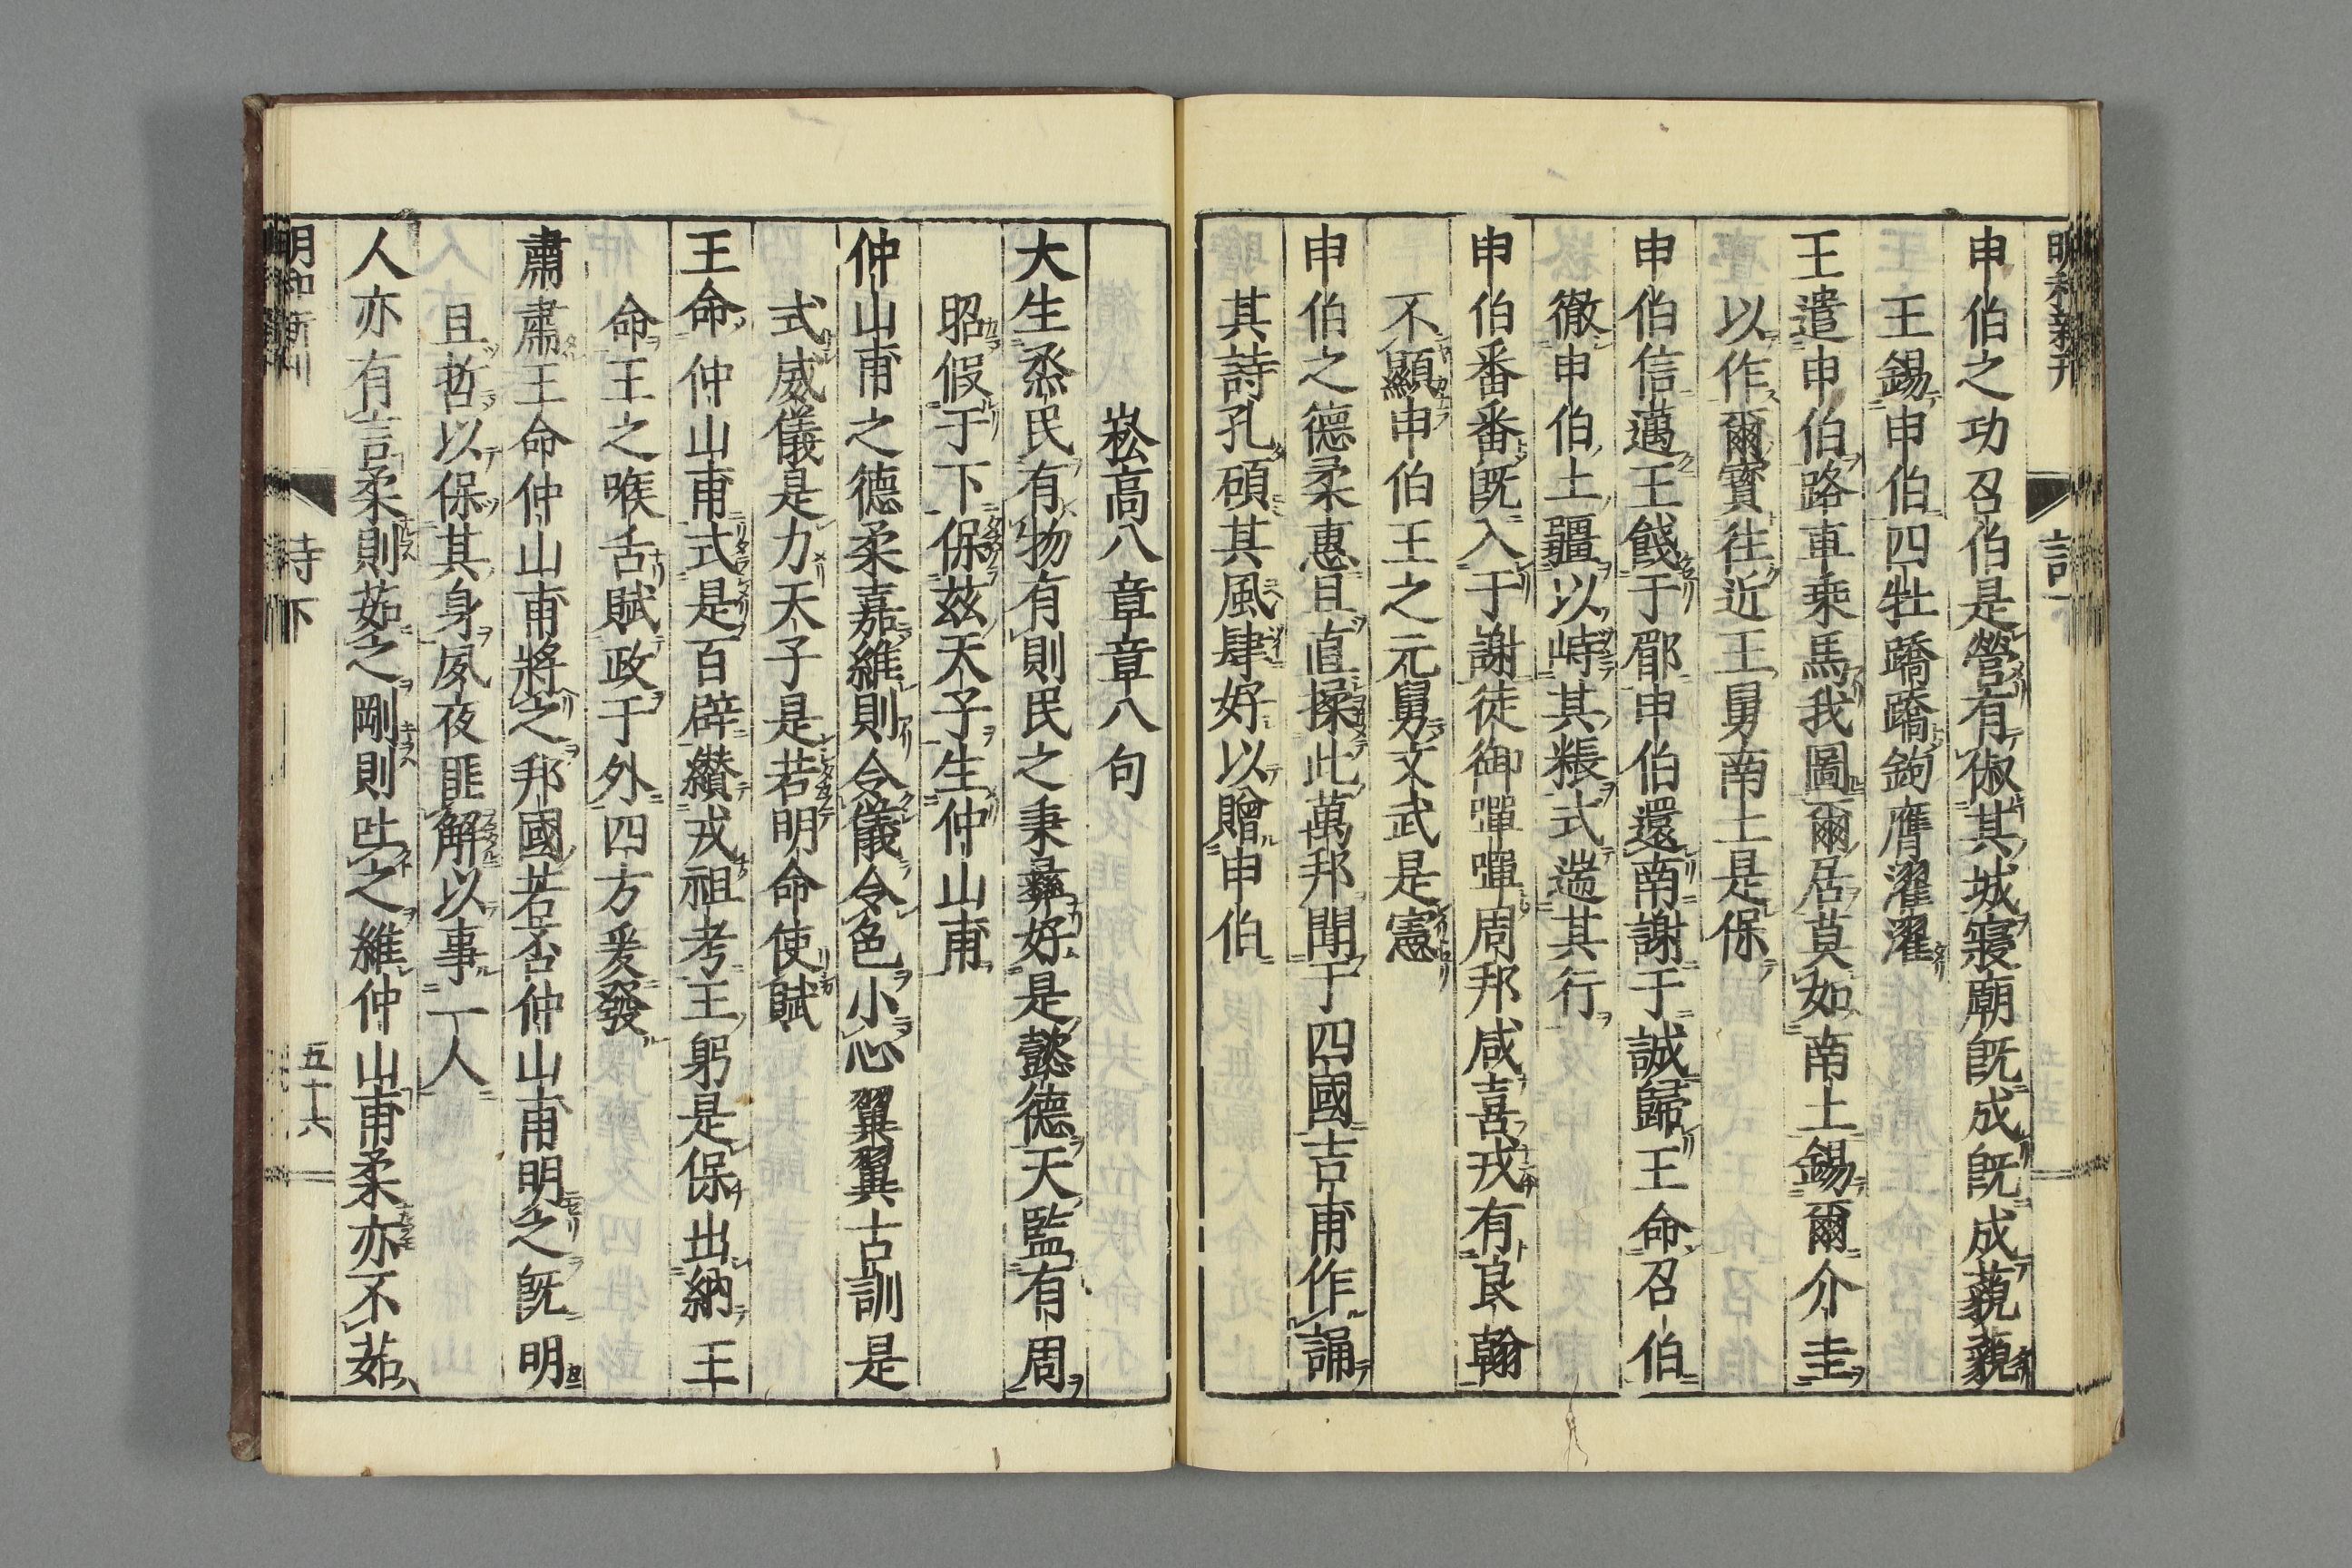 申伯之功召伯是營有俶其城寢廟既成既成藐藐
王錫申伯四牡蹻蹻鉤膺濯濯
王遣申伯路車乘馬我圖爾居莫如南土錫爾介圭
以作爾寶往近王舅南土是保
申伯信邁王餞于郿申伯還南謝于誠歸王命召伯
徹申伯土疆以峙其粻式遄其行
申伯番番既入于謝徒御嘽嘽周邦咸喜戎有良翰
不顯申伯王之元舅文武是憲
申伯之德柔惠且直揉此萬邦聞于四國吉甫作誦
其詩孔碩其風肆好以贈申伯
崧高八章章八句
大生烝民有物有則民之秉彝好是懿德天監有周
昭假于下保茲天子生仲山甫
仲山甫之德柔嘉維則令儀令色小心翼翼古訓是
式威儀是力天子是若明命使賦
王命仲山甫式是百辟纘戎祖考王躬是保出納王
命王之喉舌賦政于外四方爰發
肅肅王命仲山甫將之邦國若否仲山甫明之既明
且哲以保其身夙夜匪解以事一人
人亦有言柔則茹之剛則吐之維仲山甫柔亦不茹
明和新刊 詩下 五十六